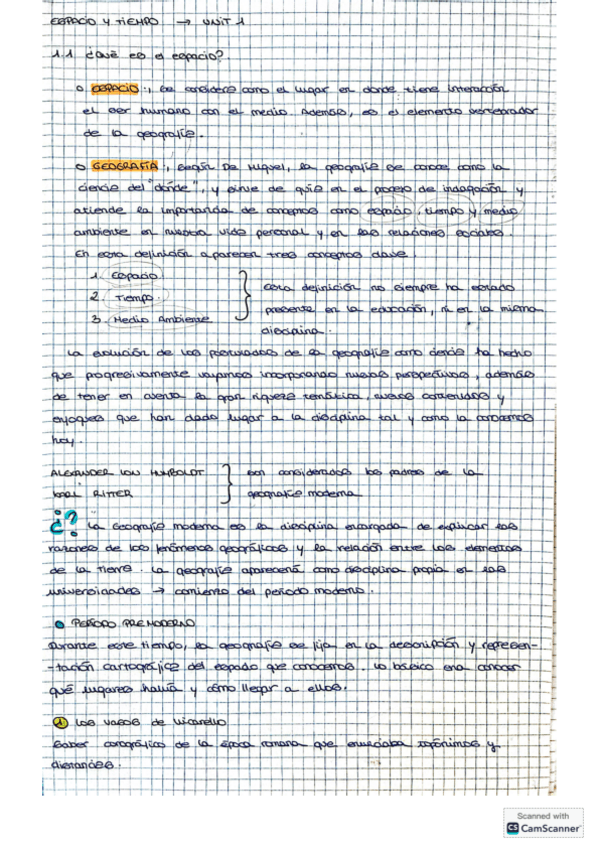 ESPACIO Y TIEMPO → UNIT 1
1.1 ¿Qué es el espacio?
ESPACIO: se considera como el lugar en donde tiene interacción
el ser humano con el medio. Además, es el elemento vertebrador
de la geografía.
GEOGRAFÍA: según De Miguel, la geografía se conoce como la
ciencia del "dónde", y sirve de guía en el proceso de indagación y
atiende la importancia de conceptos como espacio, tiempo y medio
ambiente en nuestra vida personal y en las relaciones sociales.
En esta definición aparecen tres conceptos clave.
1. Espacio
2. Tiempo.
3. Medio Ambiente
esta definición no siempre ha estado
presente en la educación, ni en la misma
disciplina.
La evolución de los postulados de la geografía como ciencia ha hecho
que progresivamente vayamos incorporando nuevas perspectivas, además
de tener en cuenta la gran riqueza temática, nuevos contenidos y
enfoques que han dado lugar a la disciplina tal y como la conocemos
hoy.
ALEXANDER VON HUMBOLDT
KARL RITTER
son considerados los padres de la
geografía moderna
¿? La Geografía moderna es la disciplina encargada de explicar las
razones de los fenómenos geográficos y la relación entre los elementos
de la tierra. La geografía aparecerá como disciplina propia en las
universidades → comienzo del periodo moderno.
PERIODO PREMODERNO
Durante este tiempo, la geografía se fija en la descripción y represen-
-tación cartográfica del espacio que conocemos. Lo básico era conocer
qué lugares había y cómo llegar a ellos.
1 Los vasos de Vicarello
Saber corográfico de la época romana que enunciaba topónimos y
distancias.
Scanned with
CS CamScanner